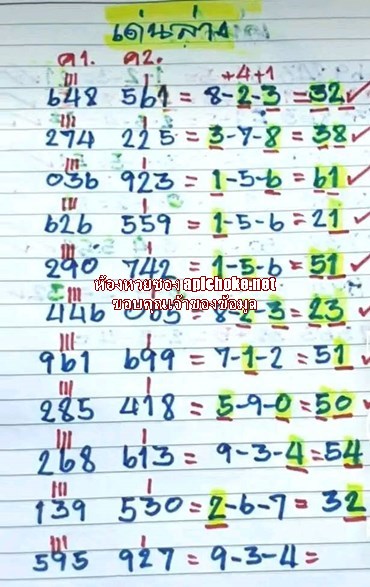 เด่นล่าง
ค1. ค2. +4+1
648 561 = 8-2-3 = 32 ✓
274 225 = 3-7-8 = 38 ✓
036 923 = 1-5-6 = 61 ✓
626 559 = 1-5-6 = 21 ✓
290 742 = 1-5-6 = 51 ✓
ห้องหวยซอง apichoke.net
ขอบคุณเจ้าของข้อมูล
446 065 = 8-2-3 = 23 ✓
961 699 = 7-1-2 = 51
285 418 = 5-9-0 = 50 ✓
268 613 = 9-3-4 = 54
139 530 = 2-6-7 = 32
595 927 = 9-3-4 =